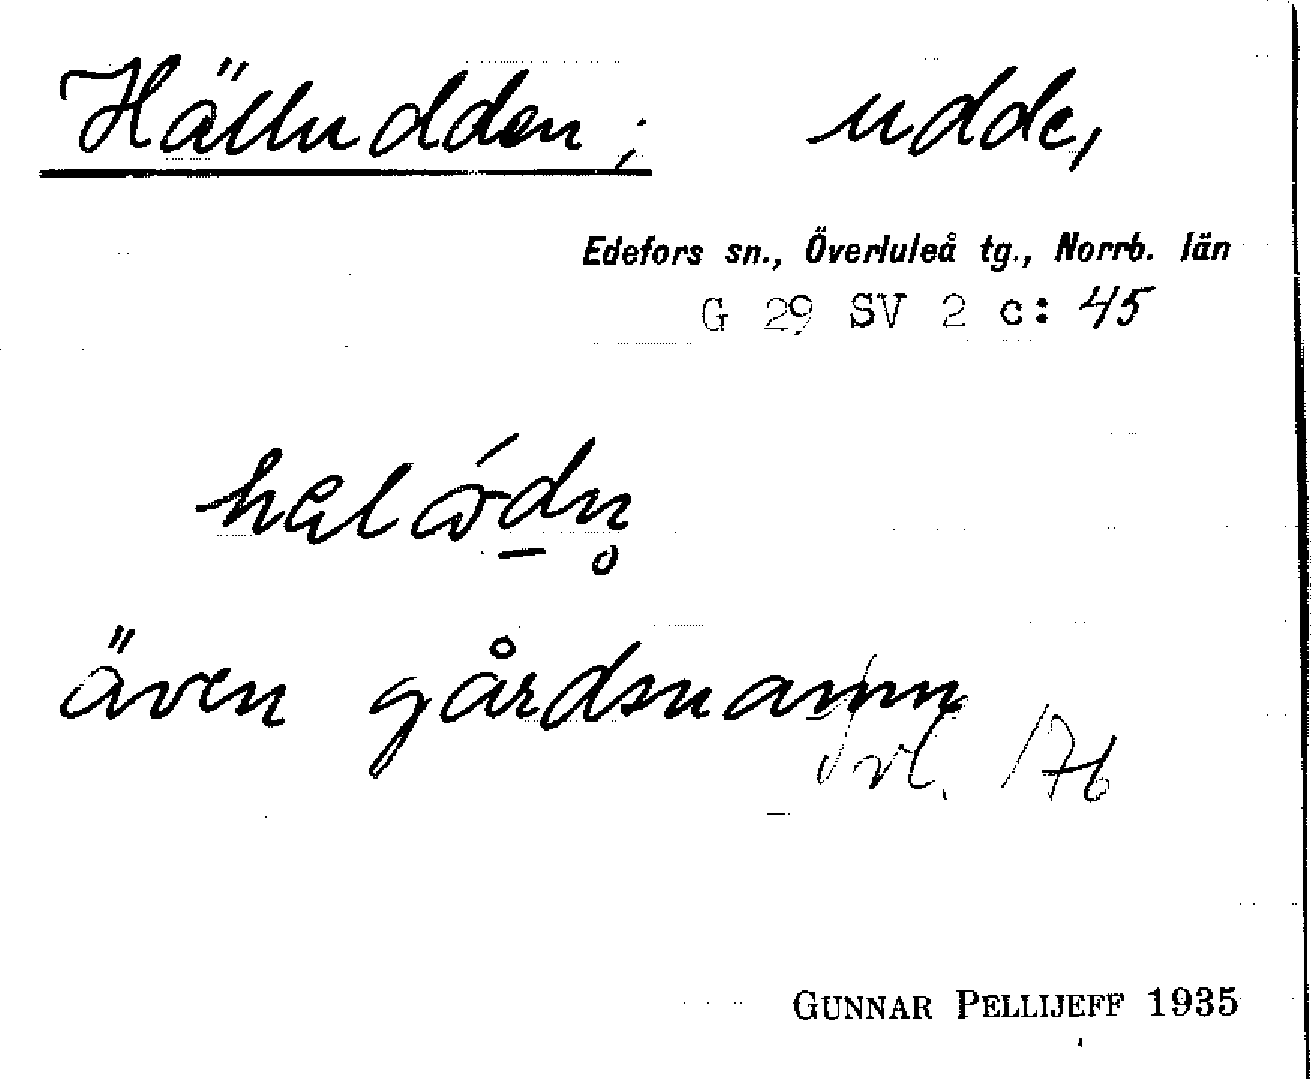 Hälludden; udde,
Edefors sn., Överluleå tg., Norrb. län
G 29 SV 2 c: 45
även gårdsnamn
/76
GUNNAR PELLIJEFF 1935